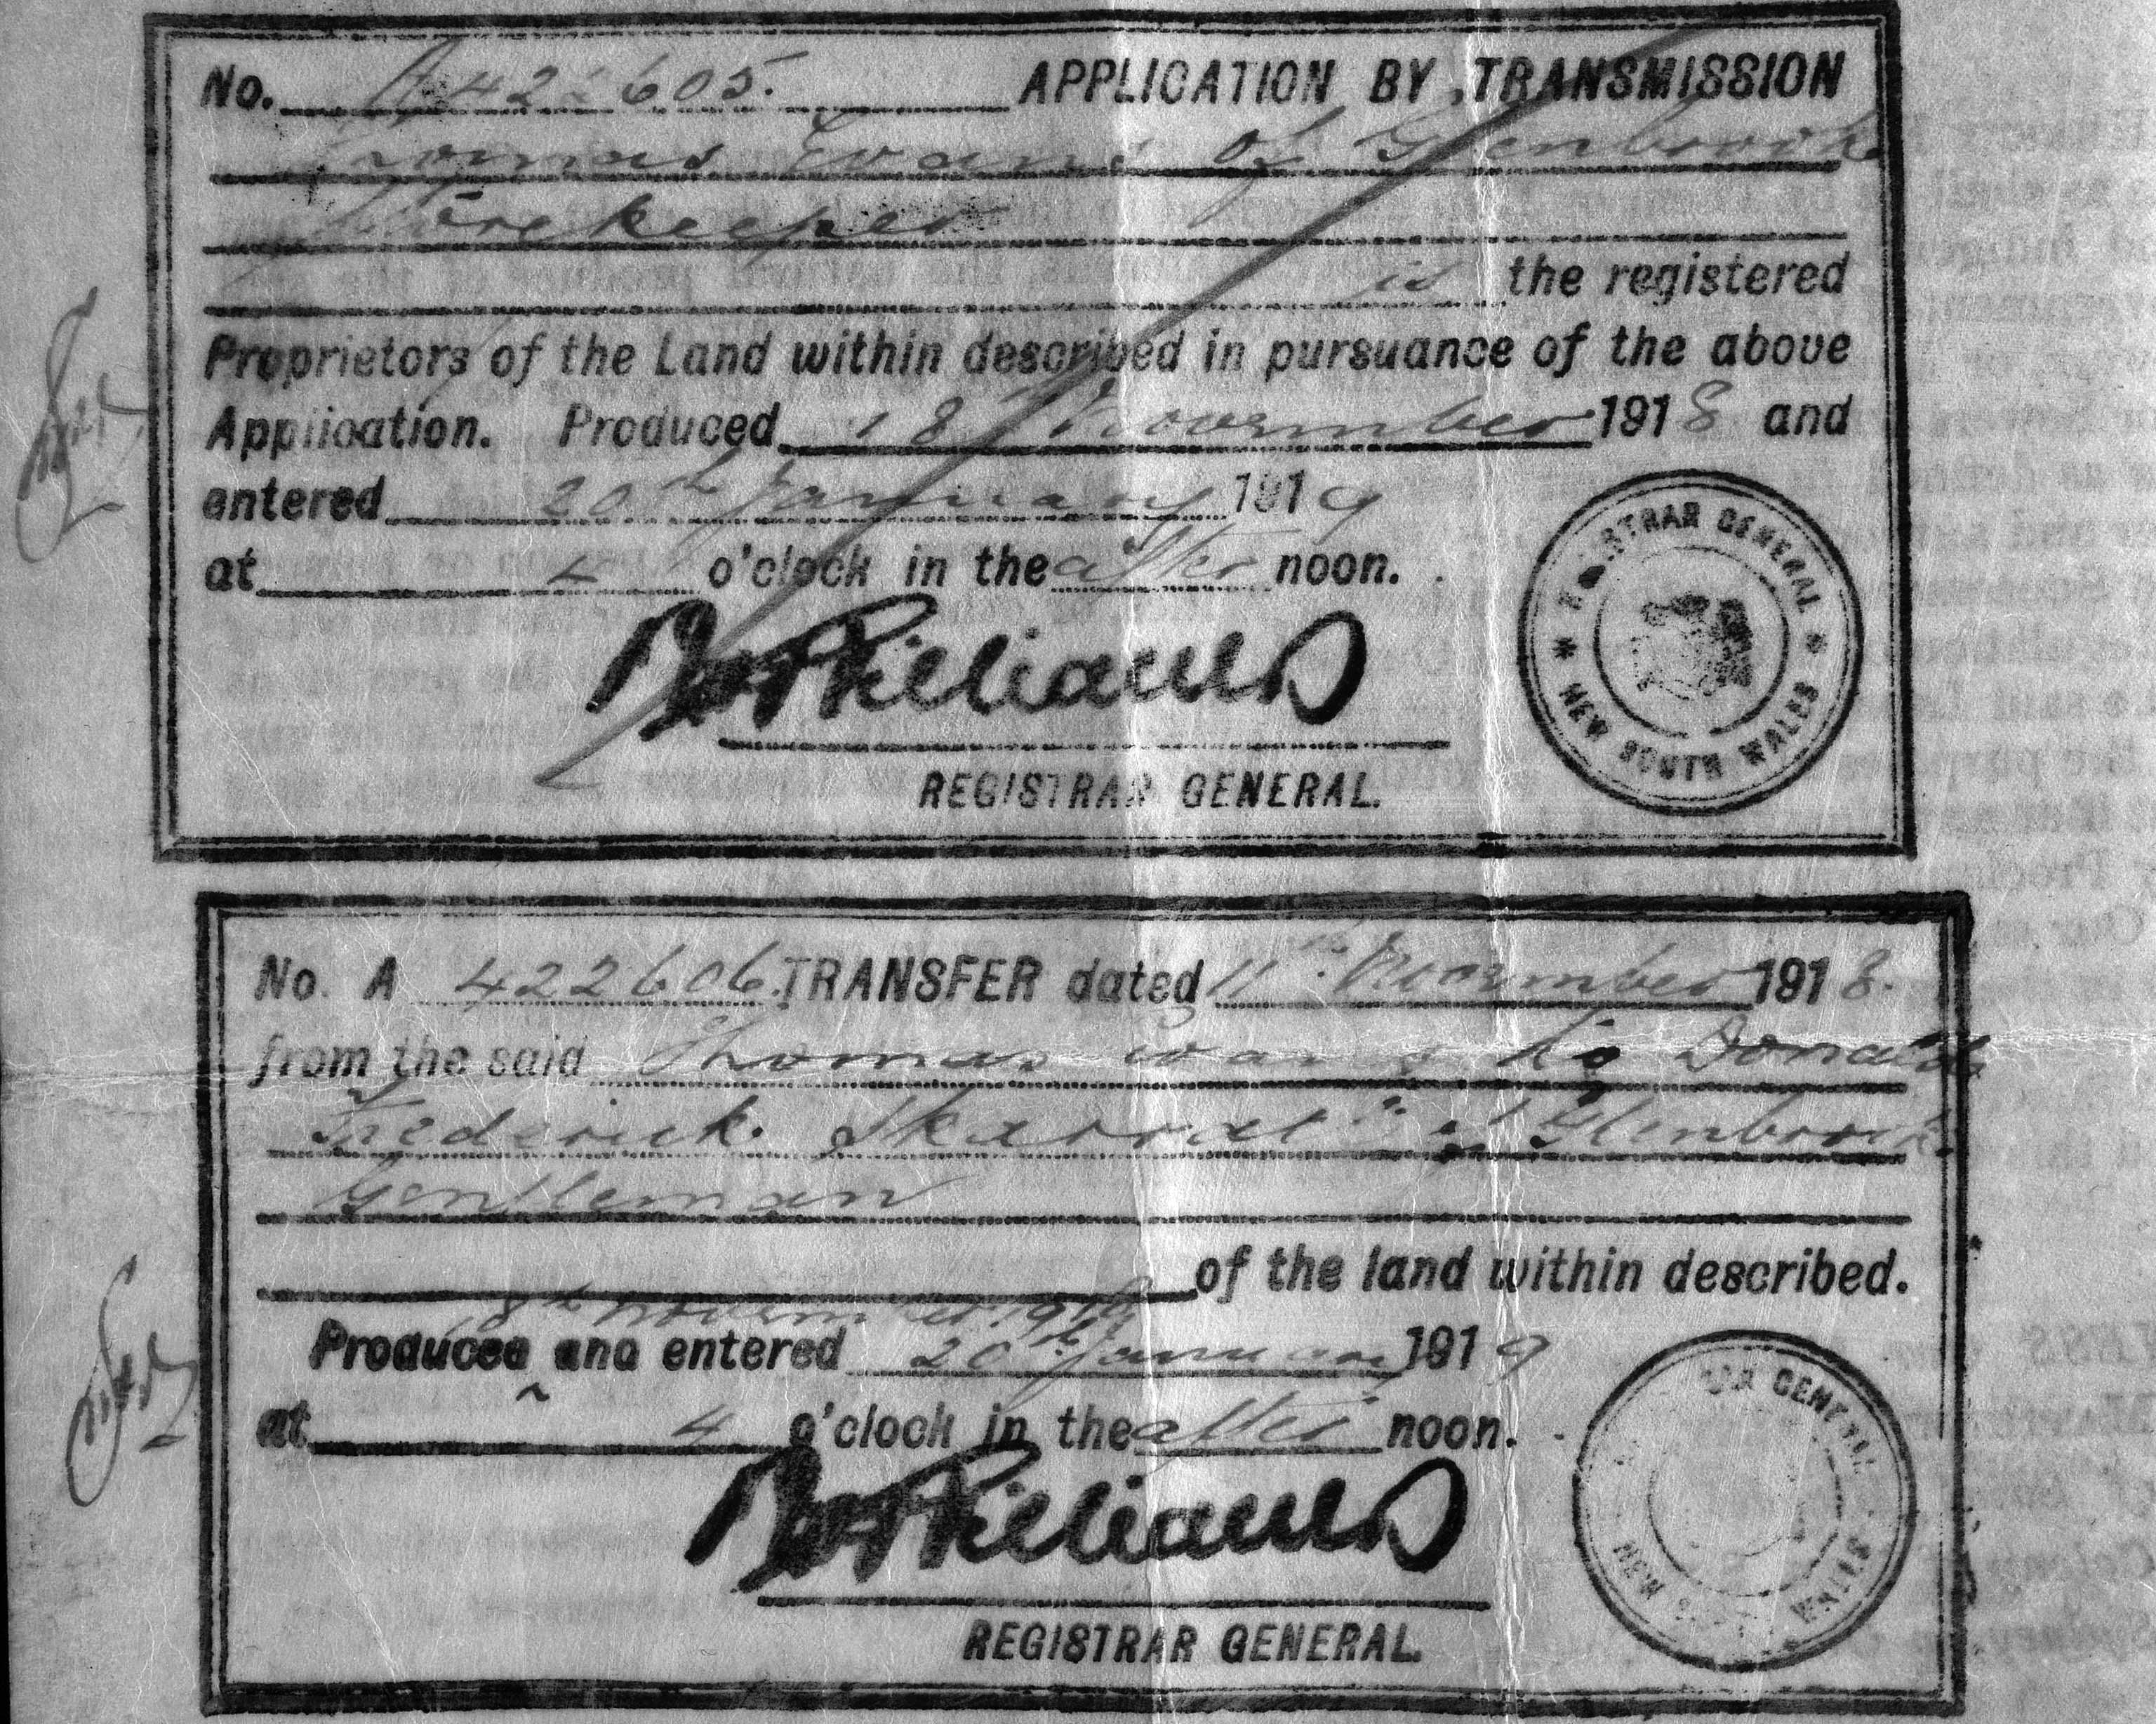 No. A 422605. APPLICATION BY TRANSMISSION
Thomas Evans of Glenbrook
Storekeeper
is the registered
Proprietors of the Land within described in pursuance of the above
Application. Produced 18th November 1918 and
entered 20th January 1919
at 4 o'clock in the after noon.
REGISTRAR GENERAL.
REGISTRAR GENERAL
NEW SOUTH WALES
No. A 422606. TRANSFER dated 11th November 1918.
from the said Thomas Evans to Donald
Frederick Skarratt of Glenbrook
Gentleman
of the land within described.
18th November 1918
Produced and entered 20th January 1919
at 4 o'clock in the after noon.
REGISTRAR GENERAL.
GENERAL
NEW SOUTH WALES